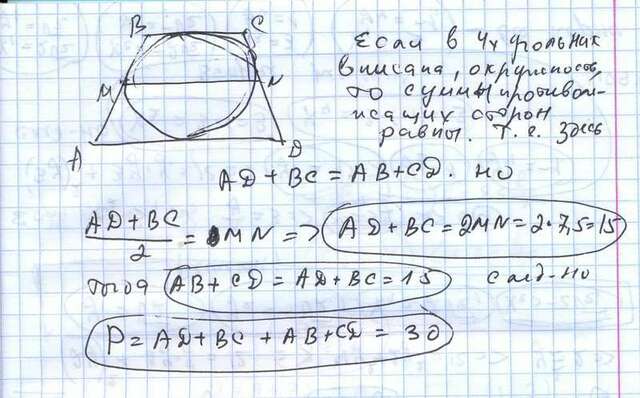 B C
M N
A D
Если в 4х угольник
вписана, окружность,
то суммы противоле-
жащих сторон
равны. т.е. здесь
AD + BC = AB + CD. но
AD + BC / 2 = MN => AD + BC = 2MN = 2·7,5 = 15
тогда AB + CD = AD + BC = 15 след-но
P = AD + BC + AB + CD = 30